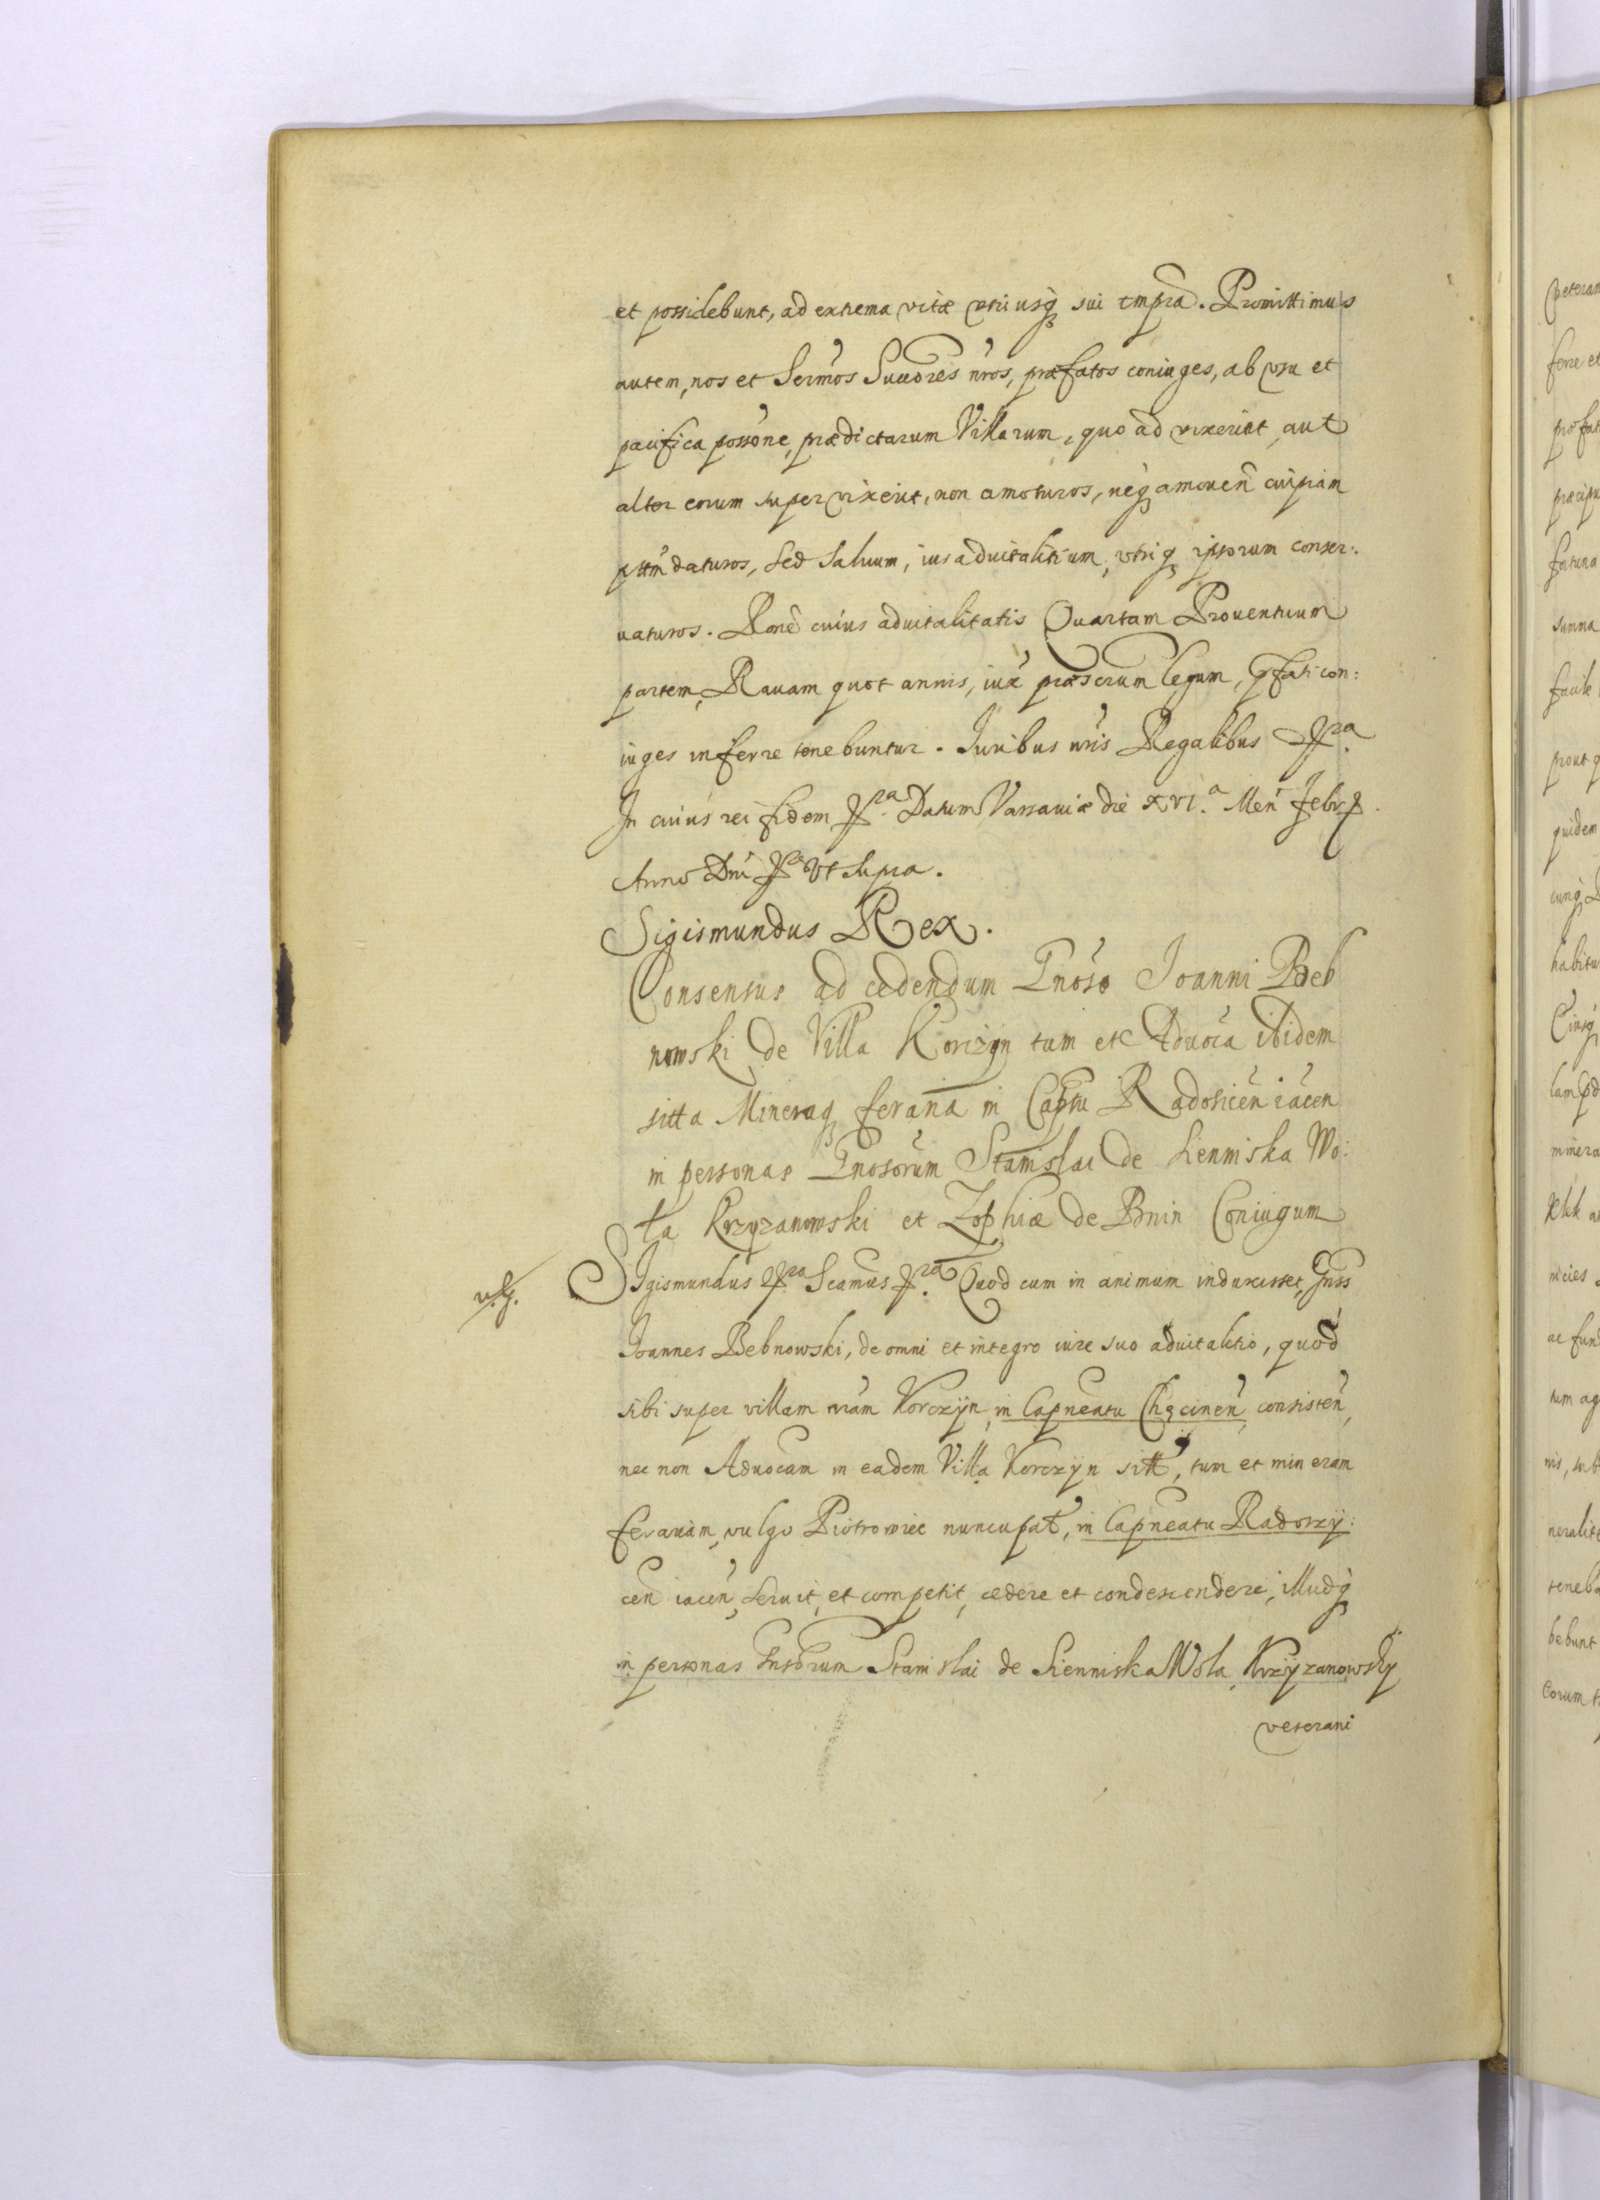 et possidebunt, ad extrema vitæ utriusq sui tmpra. Promittimus
autem, nos et Sermos Succores nros, præfatos coniuges, ab usu et
pacifica possone, prædictarum Villarum, quo ad vixerint, aut
alter eorum supervixerit, non amoturos, neq amouen cuipiam
pttm daturos, sed saluum, ius aduitalitium, utriq ipsorum conser:
uaturos. Rone cuius aduitalitatis Quartam Prouentuum
partem, Rauam quot annis, iux præscrum legum, pfati con:
iuges inferre tenebuntur. Iuribus nris Regalibus
In cuius rei fidem Datum Varsauiæ die XVI.a Men Febr
Anno Dni Ut supra.
Sigismundus Rex.
Consensus ad cedendum Gnoso Ioanni Beb
nowski de Villa Korczyn tum et Aduoca ibidem
sitta Mineraq feraria in Captu Radosicen iacen
in personas Gnosorum Stanislai de Sienniska Wo:
la Krzyzanowski et Zophiæ de Bnin Coniugum
SIgismundus Quod cum in animum induxisset, Gnss
Ioannes Bebnowski, de omni et integro iure suo aduitalitio, quod
sibi super villam nram Korczyn, in Capneatu Chęcinen, consisten,
nec non Aduocam in eadem Villa Korczyn sitt, tum et mineram
ferariam, vulgo Piotrowiec nuncupat, in Capneatu Radoszy:
cen iacen, seruit, et competit, cædere et condescendere, illudq
in personas Gnsorum Stanislai de Sienniska Wola, Krzyzanowsky
veterani